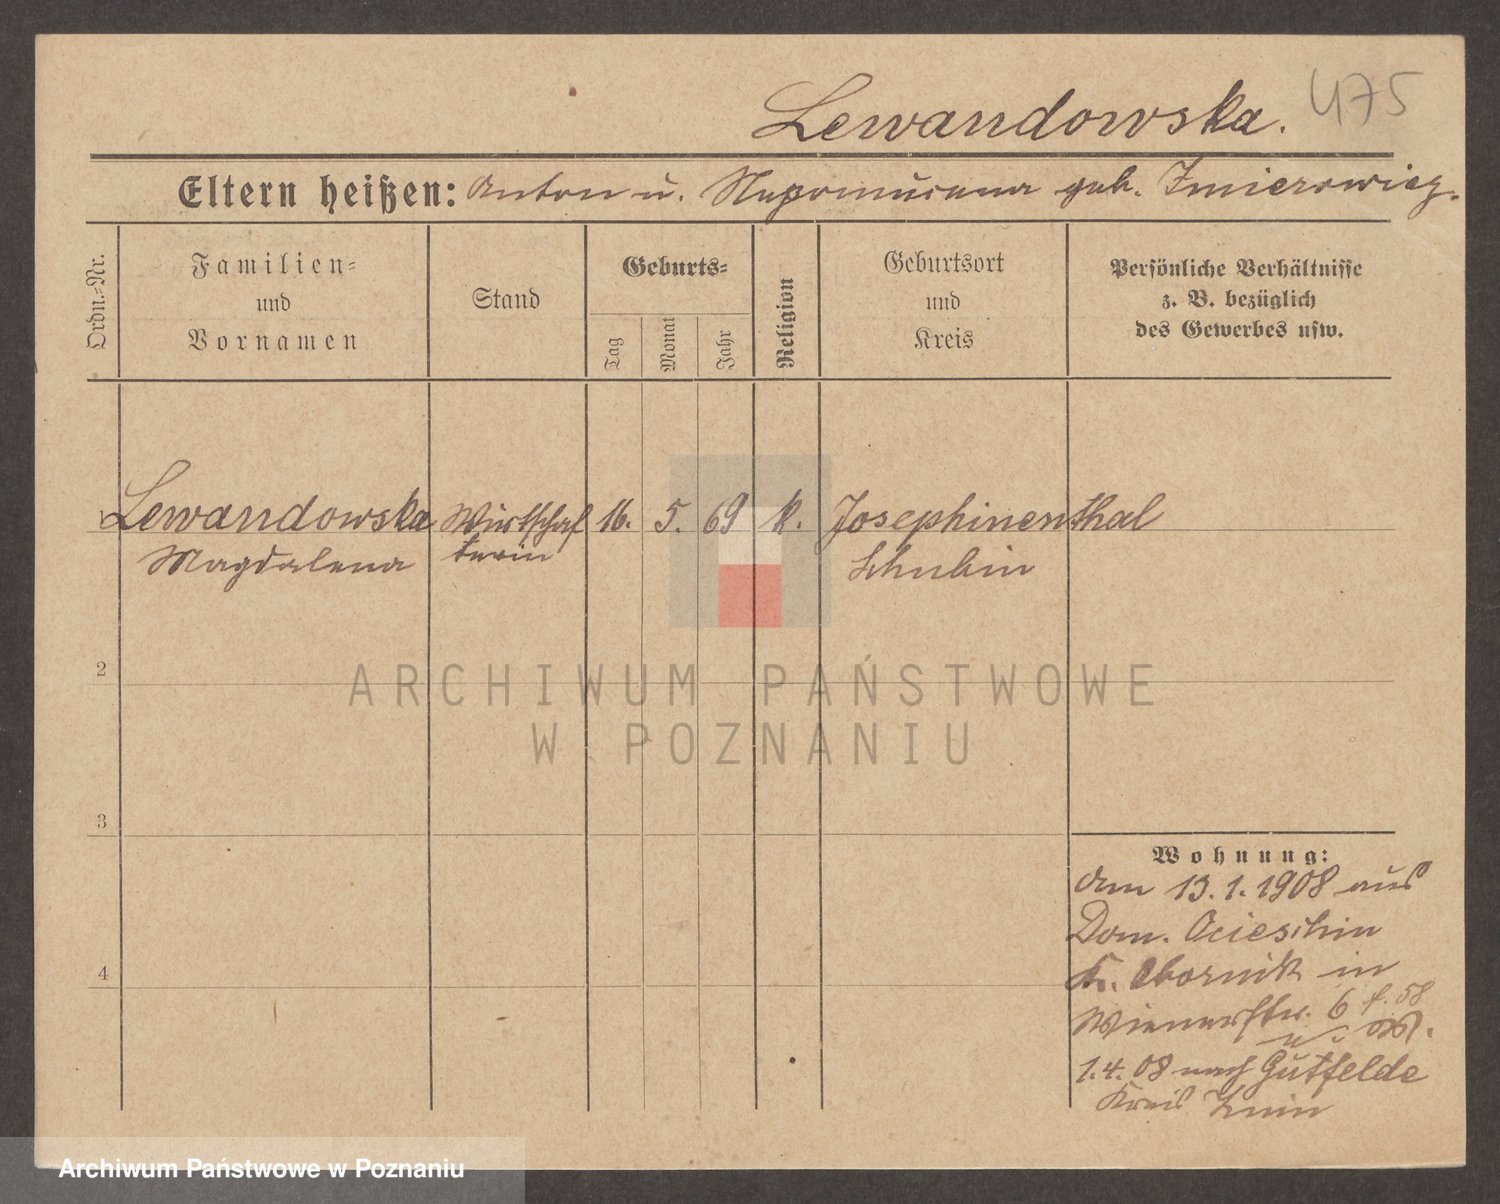 Lewandowska. 475
Eltern heißen: Anton u. Nepomucena geb.
Ordn.=Nr.
Familien=
und
Vornamen
Stand
Geburts=
Tag
Monat
Jahr
Religion
Geburtsort
und
Kreis
Persönliche Verhältnisse
z. B. bezüglich
des Gewerbes usw.
1 Lewandowska Wirtschaf 16. 5. 69 k. Josephinenthal
Magdalena terin Schubin
2
ARCHIWUM PAŃSTWOWE
W POZNANIU
3
Wohnung:
am 13.1.1908 aus
Dom. Ocieschin
Kr. Obornik in
4
Wienerstr. 6
1.4.08 nach Gutfelde
Kreis Znin
Archiwum Państwowe w Poznaniu